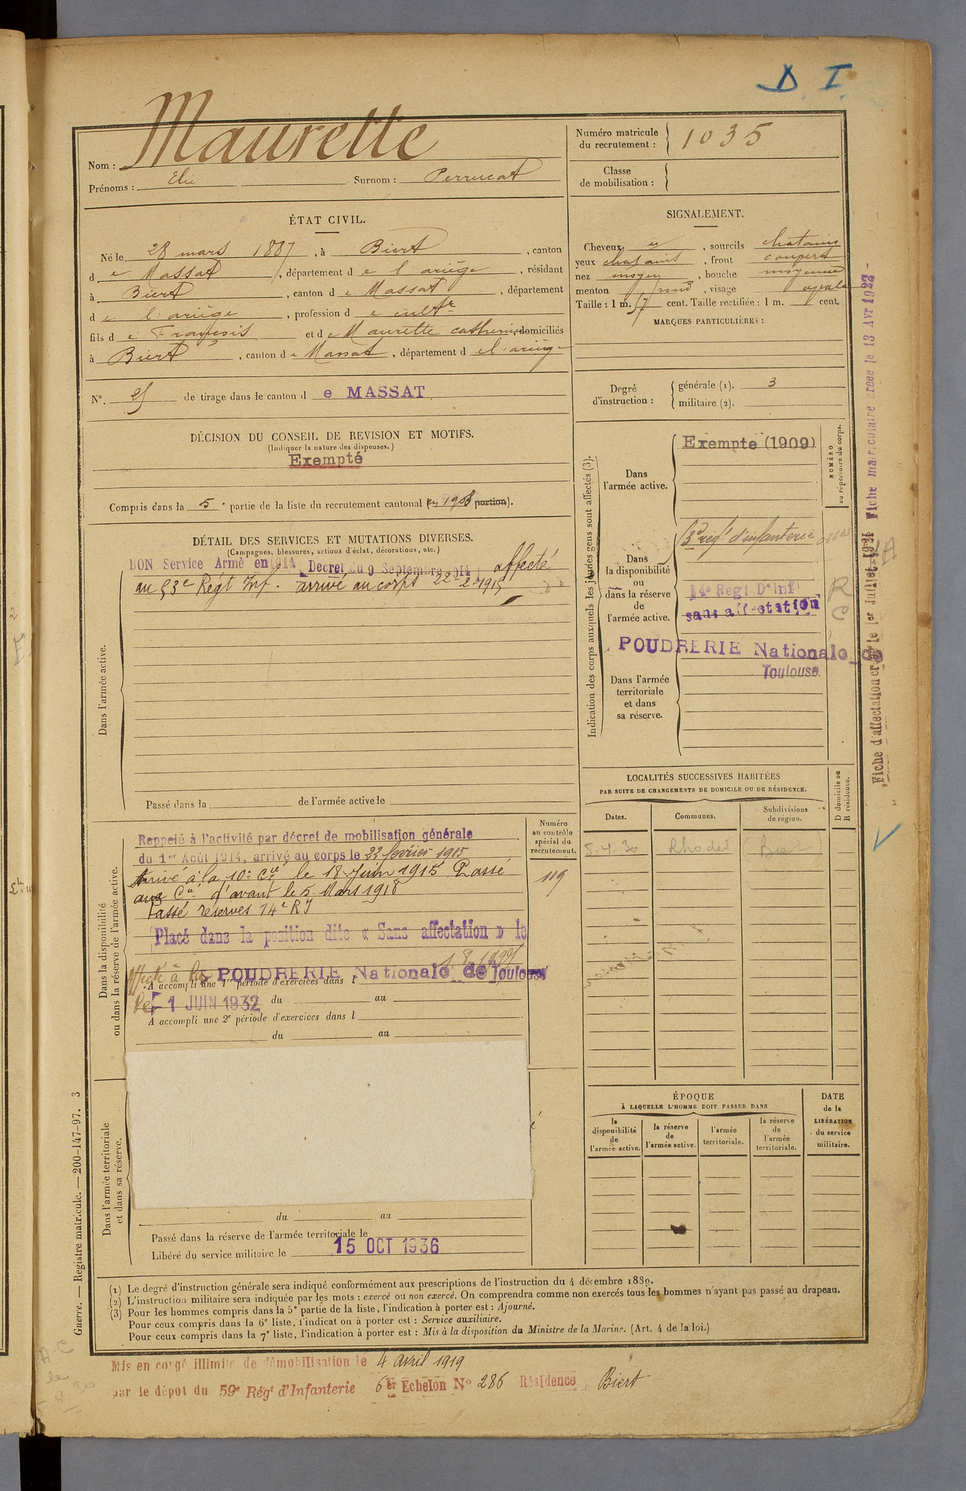 D. I.
Maurette
Nom :
Prénoms : Elie Surnom : Perrucat
Numéro matricule du recrutement : 1035
Classe de mobilisation :
ÉTAT CIVIL.
Né le 28 mars 1887, à Biert, canton
d e Massat, département d e l'ariège, résidant
à Biert, canton d e Massat, département
d e l'ariège, profession d e cultr
fils d e François et d e Maurette catherine, domiciliés
à Biert, canton d e Massat, département d e l'ariège
N°. de tirage dans le canton d e MASSAT
SIGNALEMENT.
Cheveux, sourcils chatains
yeux chatains, front couvert
nez moyen, bouche moyenne
menton rond, visage ovale
Taille : 1 m. 57 cent. Taille rectifiée : 1 m. cent.
MARQUES PARTICULIÈRES :
Degré d'instruction : générale (1). 3
militaire (2).
DÉCISION DU CONSEIL DE REVISION ET MOTIFS.
(Indiquer la nature des dispenses.)
Exempté
Compris dans la 5e partie de la liste du recrutement cantonal (en 1908 portion).
DÉTAIL DES SERVICES ET MUTATIONS DIVERSES.
(Campagnes, blessures, actions d'éclat, décorations, etc.)
BON Service Armé en 1914 Decret du 9 Septembre 1914 affecté
au 53e Régt Inf. arrivé au corps 22-2-1915
Dans l'armée active.
Passé dans la de l'armée active le
Indication des corps auxquels les jeunes gens sont affectés (3).
Dans l'armée active.
Exempté (1909)
NUMÉRO au répertoire du corps.
Dans la disponibilité ou dans la réserve de l'armée active.
53e régt d'infanterie
14e Regt D'Inf
sans affectation
R
C
POUDRERIE Nationale de
Toulouse.
Dans l'armée territoriale et dans sa réserve.
LOCALITÉS SUCCESSIVES HABITÉES
PAR SUITE DE CHANGEMENTS DE DOMICILE OU DE RÉSIDENCE.
Dates. Communes. Subdivisions de région. D domicile ou R résidence.
5-4-30
Dans la disponibilité ou dans la réserve de l'armée active.
Numéro au contrôle spécial du recrutement.
119
Rappelé à l'activité par décret de mobilisation générale
du 1er Août 1914, arrivé au corps le 22 février 1915
Arrivé à la 10e Cie le 18 Juin 1915 Passé
aux Cies d'avant le 5 Mars 1918
Passé réserves 14e RI
Placé dans la position dite « Sans affectation » le
affecté à la POUDRERIE Nationale de Toulouse
A accompli une 1re période d'exercices dans l
le 1 JUIN 1932 du au
A accompli une 2e période d'exercices dans l
du au
Dans l'armée territoriale et dans sa réserve.
du au
Passé dans la réserve de l'armée territoriale le
Libéré du service militaire le 15 OCT 1936
ÉPOQUE
À LAQUELLE L'HOMME DOIT PASSER DANS
la disponibilité de l'armée active. la réserve de l'armée active. l'armée territoriale. la réserve de l'armée territoriale.
DATE de la LIBÉRATION du service militaire.
(1) Le degré d'instruction générale sera indiqué conformément aux prescriptions de l'instruction du 4 décembre 1889.
(2) L'instruction militaire sera indiquée par les mots : exercé ou non exercé. On comprendra comme non exercés tous les hommes n'ayant pas passé au drapeau.
(3) Pour les hommes compris dans la 5e partie de la liste, l'indication à porter est : Ajourné.
Pour ceux compris dans la 6e liste, l'indication à porter est : Service auxiliaire.
Pour ceux compris dans la 7e liste, l'indication à porter est : Mis à la disposition du Ministre de la Marine. (Art. 4 de la loi.)
Mis en congé illimité de démobilisation le 4 avril 1919
par le dépôt du 59e Régt d'Infanterie 6er Echelon N° 286 Résidence Biert
Guerre. — Registre matricule. — 200-147-97. 3
Fiche matriculaire créée le 13 Avr 1922
Fiche d'affectation créée le 1er Juillet 1931